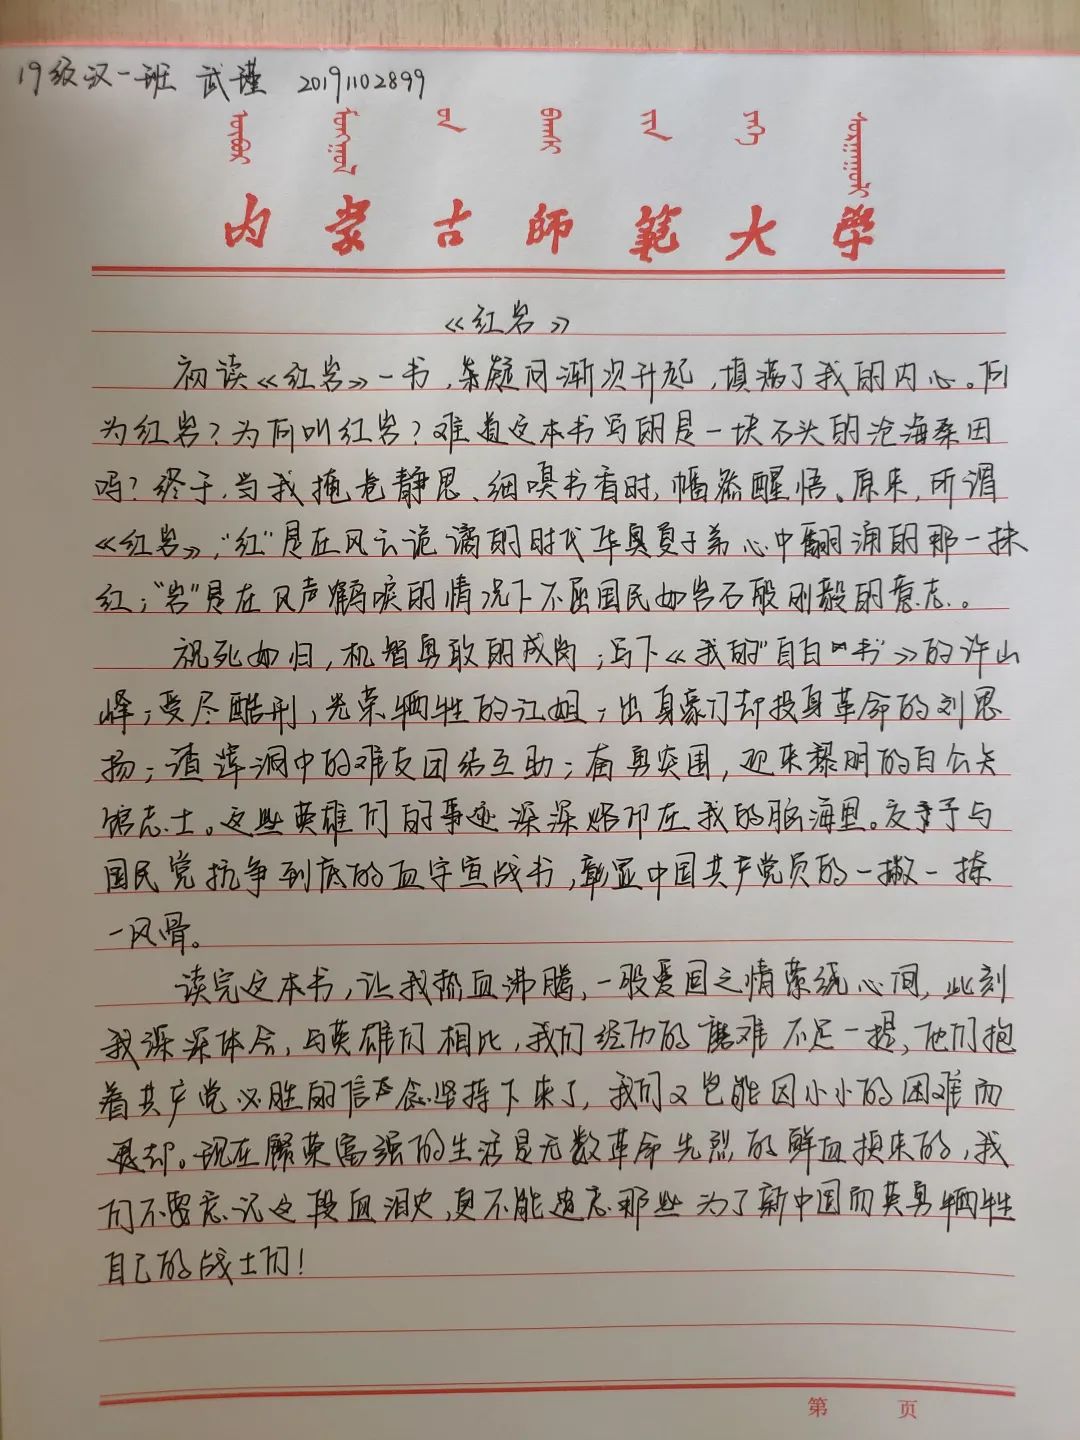 19级汉一班 武瑾 20191102899
内蒙古师范大学
《红岩》
初读《红岩》一书,条疑问渐次升起,填满了我的内心。何
为红岩?为何叫红岩?难道这本书写的是一块石头的沧海桑田
吗?终于,当我掩卷静思、细嗅书香时,幡然醒悟、原来,所谓
《红岩》,“红”是在风云诡谲的时代华夏子弟心中翻涌的那一抹
红;“岩”是在风声鹤唳的情况下不屈国民如岩石般刚毅的意志。
视死如归,机智勇敢的成岗;写下《我的“自白”书》的许云
峰;受尽酷刑,光荣牺牲的江姐;出身豪门却投身革命的刘思
扬;渣滓洞中的难友团结互助;奋勇突围,迎来黎明的白公
馆志士。这些英雄们的事迹深深烙印在我的脑海里。友于与
国民党抗争到底的血字宣战书,彰显中国共产党员的一撇一捺
一风骨。
读完这本书,让我热血沸腾,一股爱国之情萦绕心间,此刻
我深深体会,与英雄们相比,我们经历的磨难不足一提,他们抱
着共产党必胜的信念坚持下来了,我们又岂能因小小的困难而
退却。现在繁荣富强的生活是无数革命先烈的鲜血换来的,我
们不要忘记这段血泪史,更不能遗忘那些为了新中国而英勇牺牲
自己的战士们!
第 页